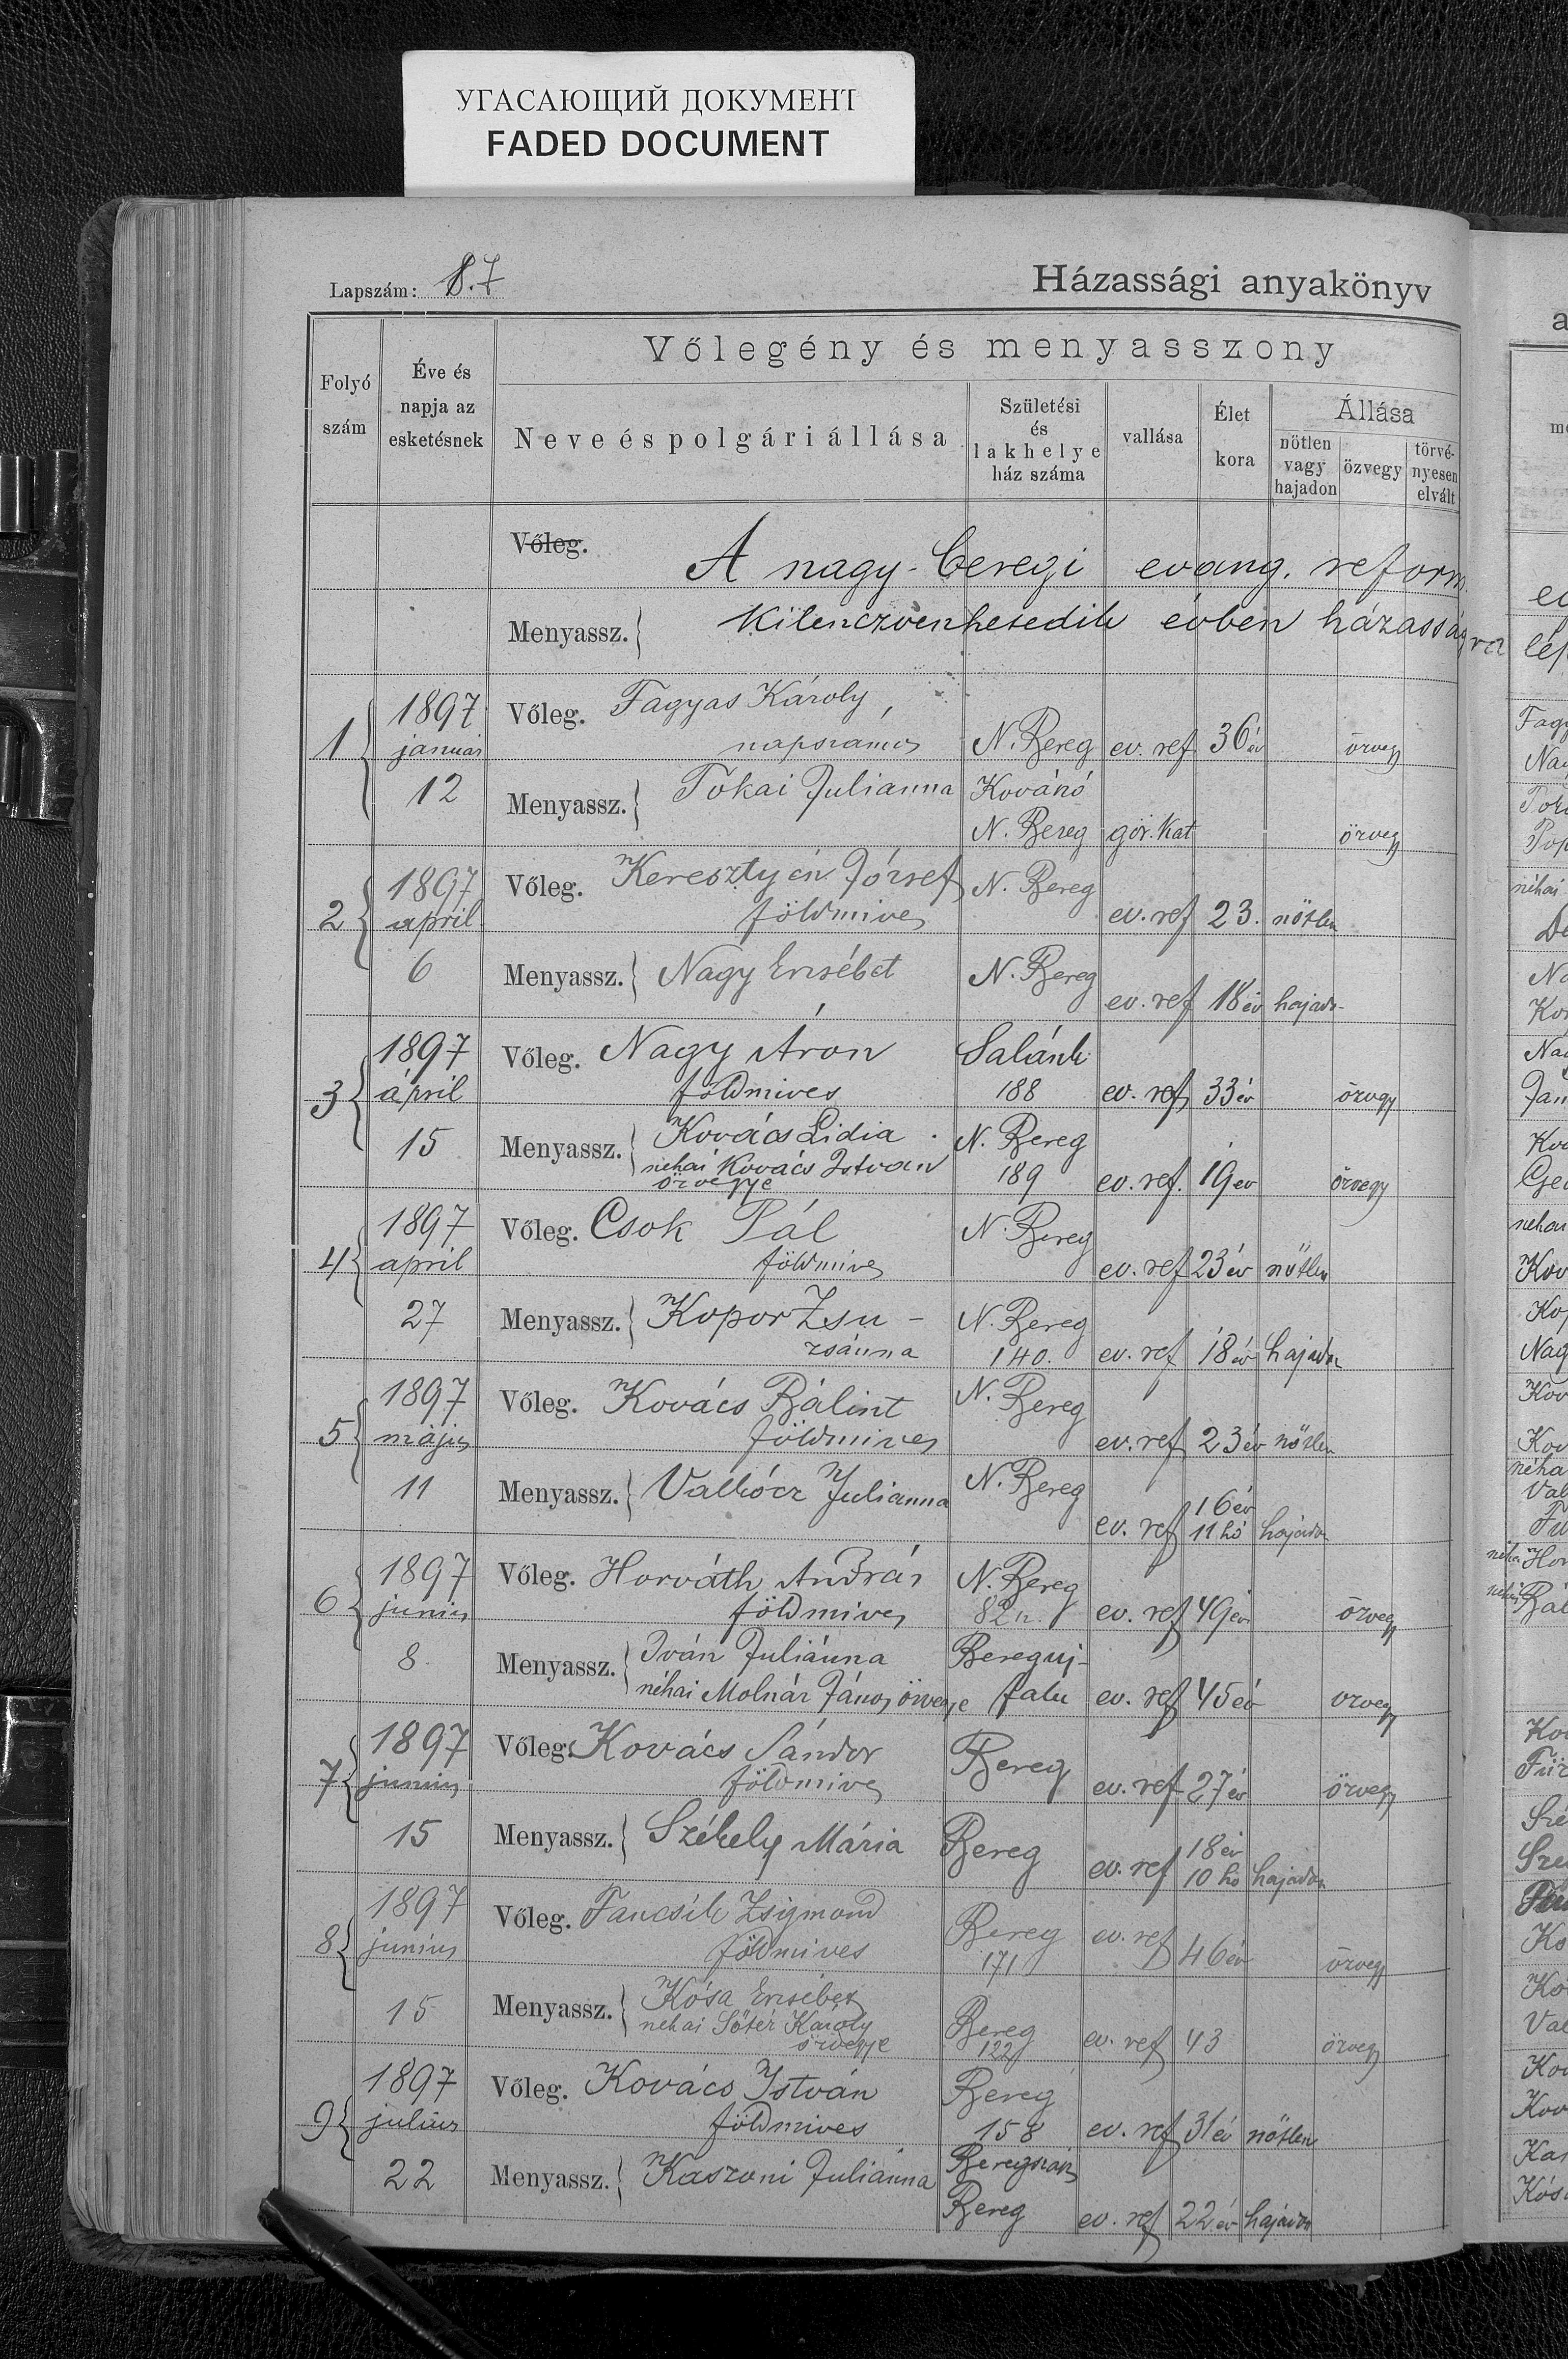 УГАСАЮЩИЙ ДОКУМЕНТ
FADED DOCUMENT
Lapszám: 87
Házassági anyakönyv
Folyó szám
Éve és napja az esketésnek
Vőlegény és menyasszony
Neve és polgári állása
Születési és lakhelye ház száma
vallása
Élet kora
Állása
nőtlen vagy hajadon
özvegy
törvényesen elvált
Vőleg. A nagy-beregi evang. reform.
Menyassz. Kilenczvenhetedik évben házasságra
1 1897 január 12
Vőleg. Fagyas Károly,
napszámos N. Bereg ev. ref 36 év özvegy
Menyassz. Tokai Julianna
N. Bereg gör. kat özvegy
2 1897 april 6
Vőleg. Keresztyén József N. Bereg
földmives ev. ref 23. nőtlen
Menyassz. Nagy Erzsébet N. Bereg
ev. ref 18 év hajado-
3 1897 ápril 15
Vőleg. Nagy Áron Salánk
földmives 188 ev. ref 33 év özvegy
Menyassz. Kovács Lidia N. Bereg
néhai Kovács Istvan
özvegye 189 ev. ref. 19 ev özvegy
4 1897 april 27
Vőleg. Csok Pál N. Bereg
földmives ev. ref 23 év nőtlen
Menyassz. Kopor Zsu- N. Bereg
zsánna 140. ev. ref 18 év hajadon
5 1897 május 11
Vőleg. Kovács Bálint N. Bereg
földmives ev. ref 23 év nőtlen
Menyassz. Valkócz Julianna N. Bereg
ev. ref 16 év 11 hó hajadon
6 1897 junius 8
Vőleg. Horváth András N. Bereg
földmives 82 ev. ref 49 év özvegy
Menyassz. Iván Juliánna Bereguj-
néhai Molnár János özvegye falu ev. ref 45 év özvegy
7 1897 junius 15
Vőleg. Kovács Sándor Bereg
földmives ev. ref 27 év özvegy
Menyassz. Székely Mária Bereg
ev. ref 18 év 10 hó hajadon
8 1897 junius 15
Vőleg. Fancsik Zsigmond Bereg
földmives 171 ev. ref 46 év özvegy
Menyassz. Kósa Erzsébet
nehai Sőtér Károly
özvegye Bereg 122 ev. ref 43 özvegy
9 1897 julius 22
Vőleg. Kovács István Bereg
földmives 158 ev. ref 31 év nőtlen
Menyassz. Kaszoni Juliánna Beregszász
Bereg ev. ref 22 év hajadon